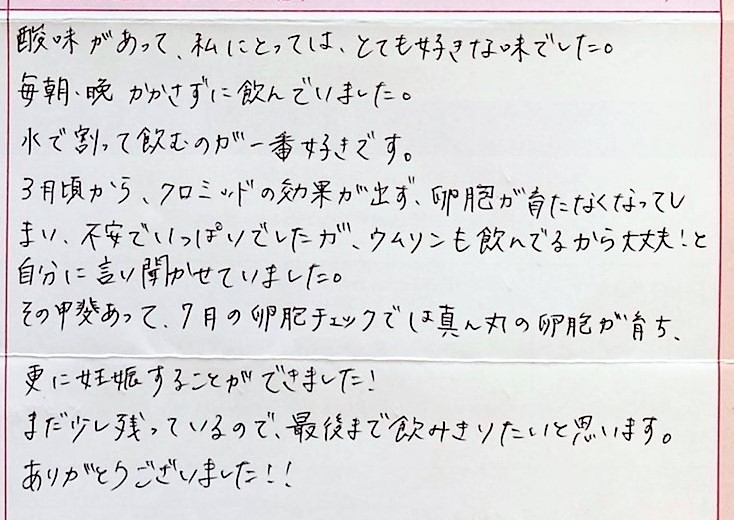 酸味があって、私にとっては、とても好きな味でした。
毎朝、晩 かかさずに飲んでいました。
水で割って飲むのが一番好きです。
3月頃から、クロミッドの効果が出ず、卵胞が育たなくなってし
まい、不安でいっぱいでしたが、ウムリンも飲んでるから大丈夫!と
自分に言い聞かせていました。
その甲斐あって、7月の卵胞チェックでは真ん丸の卵胞が育ち、
更に妊娠することができました!
まだ少し残っているので、最後まで飲みきりたいと思います。
ありがとうございました!!